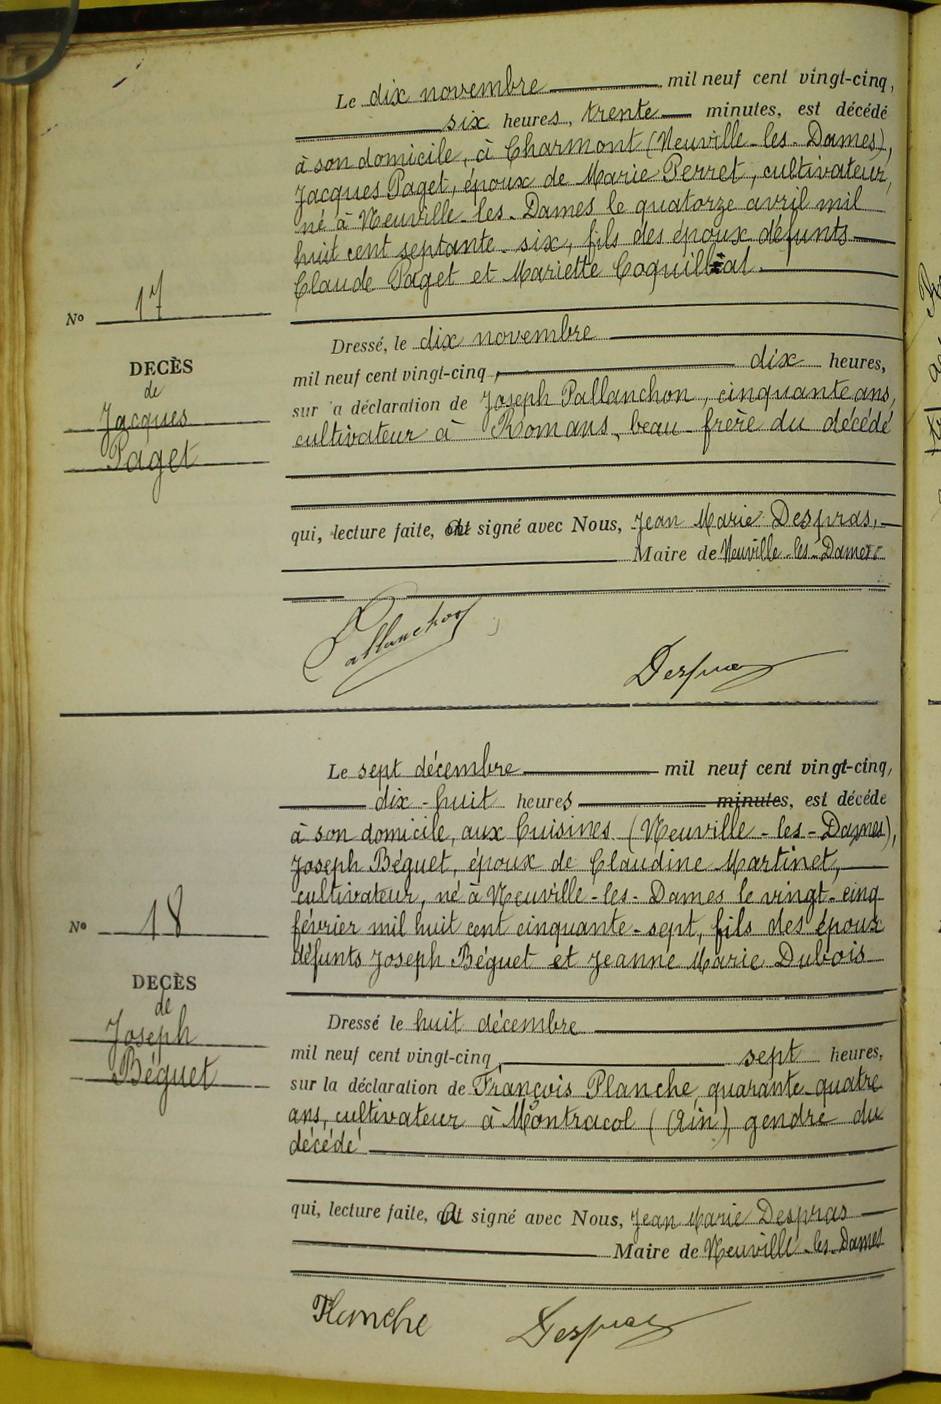 Le dix novembre mil neuf cent vingt-cinq,
six heures, trente minutes, est décédé
à son domicile, à Charmont (Neuville-les-Dames),
Jacques Paget, époux de Marie Perret, cultivateur,
né à Neuville-les-Dames le quatorze avril mil
huit cent septante-six, fils des époux défunts
Claude Paget et Mariette Coquillat.
N° 17
DECÈS
de
Jacques
Paget
Dressé, le dix novembre
mil neuf cent vingt-cinq, dix heures,
sur la déclaration de Joseph Pallanchon, cinquante ans,
cultivateur à Romans, beau-frère du décédé
qui, lecture faite, a signé avec Nous, Jean Marie Despras,
Maire de Neuville-les-Dames
Pallanchon
Despras
Le sept décembre mil neuf cent vingt-cinq,
dix-huit heures minutes, est décédé
à son domicile, aux Cuisines (Neuville-les-Dames),
Joseph Béguet, époux de Claudine Martinet,
cultivateur, né à Neuville-les-Dames le vingt-cinq
février mil huit cent cinquante-sept, fils des époux
défunts Joseph Béguet et Jeanne Marie Dubois
N° 18
DECÈS
de
Joseph
Béguet
Dressé le huit décembre
mil neuf cent vingt-cinq, sept heures,
sur la déclaration de François Planche, quarante-quatre
ans, cultivateur à Montracol (Ain), gendre du
décédé
qui, lecture faite, a signé avec Nous, Jean Marie Despras
Maire de Neuville-les-Dames
Planche
Despras